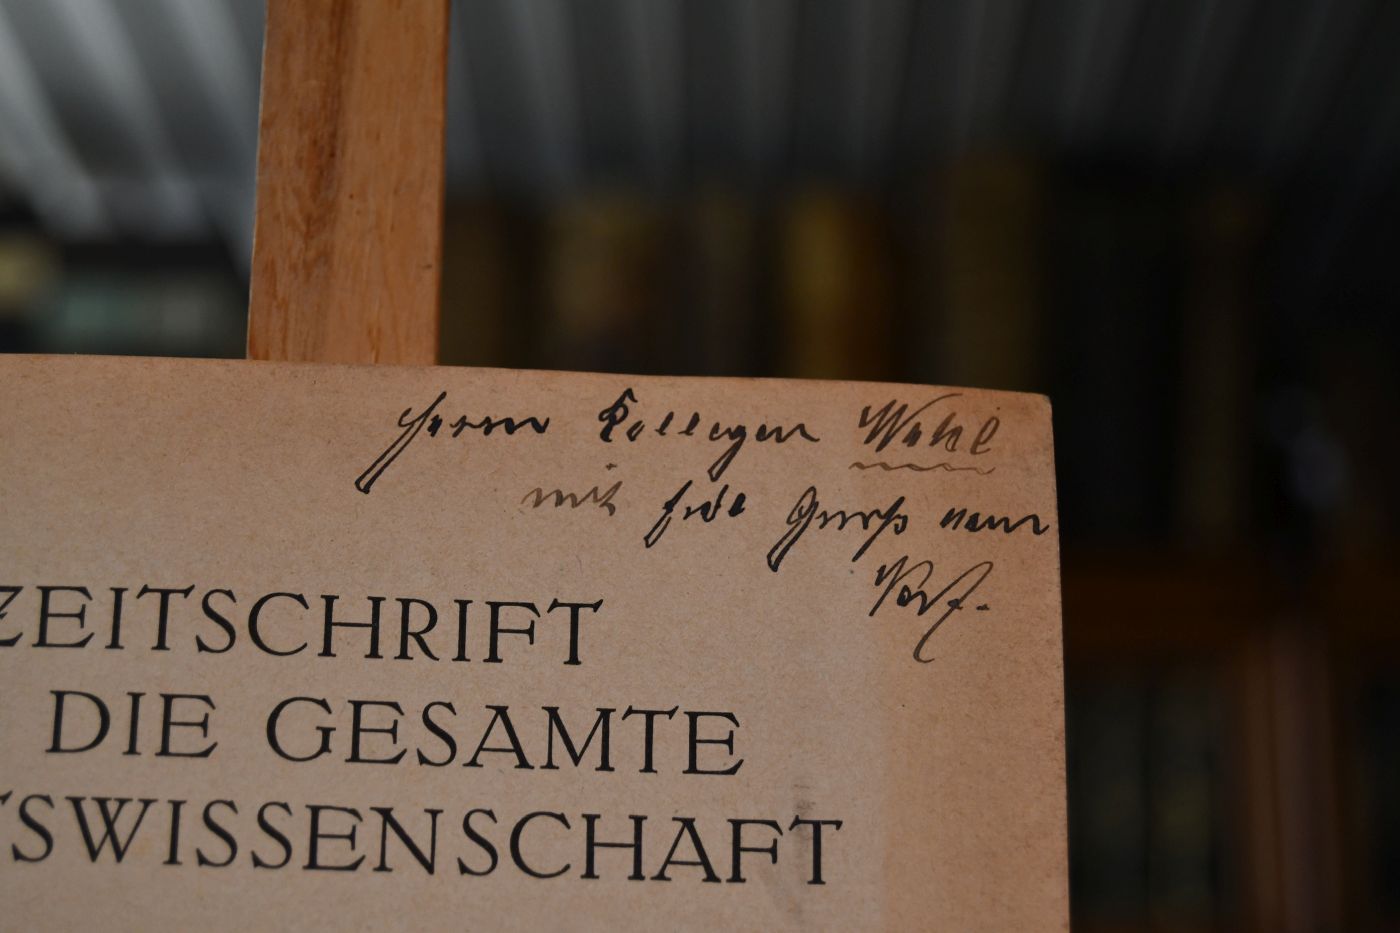 Herrn Kollegen Wahl
mit frdl Gruß vom
Verf.
ZEITSCHRIFT
DIE GESAMTE
TSWISSENSCHAFT